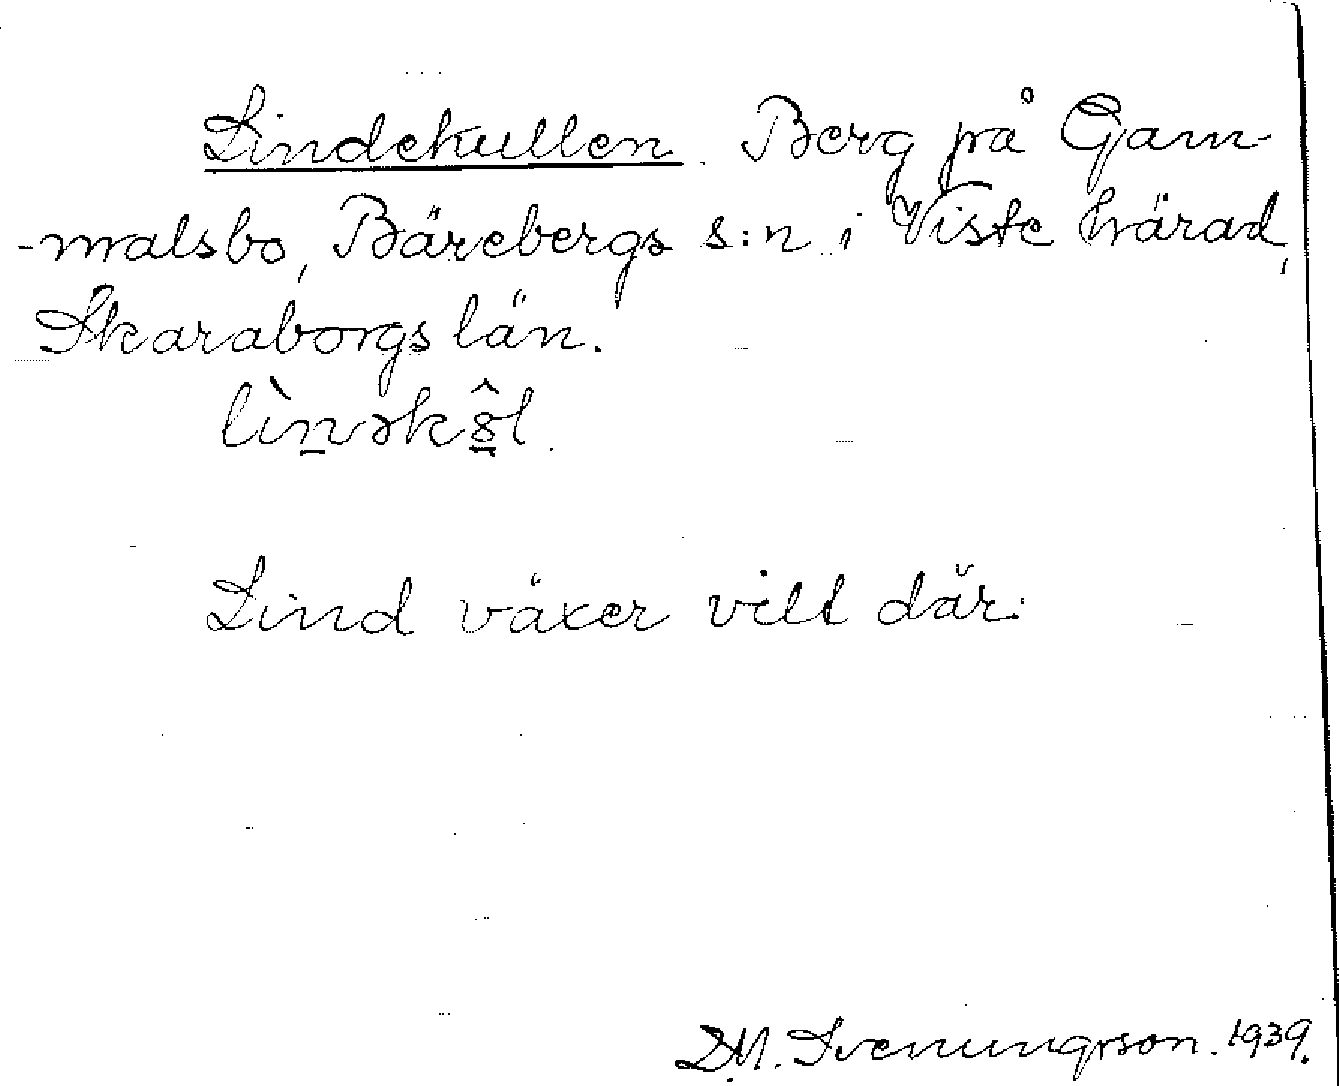 Lindekullen. Berg på Gam-
-malsbo, Bärebergs s:n i Viste härad,
Skaraborgs län.
lìn̲əkô̲l.
Lind växer vilt där.
D.M. Svenungsson. 1939.